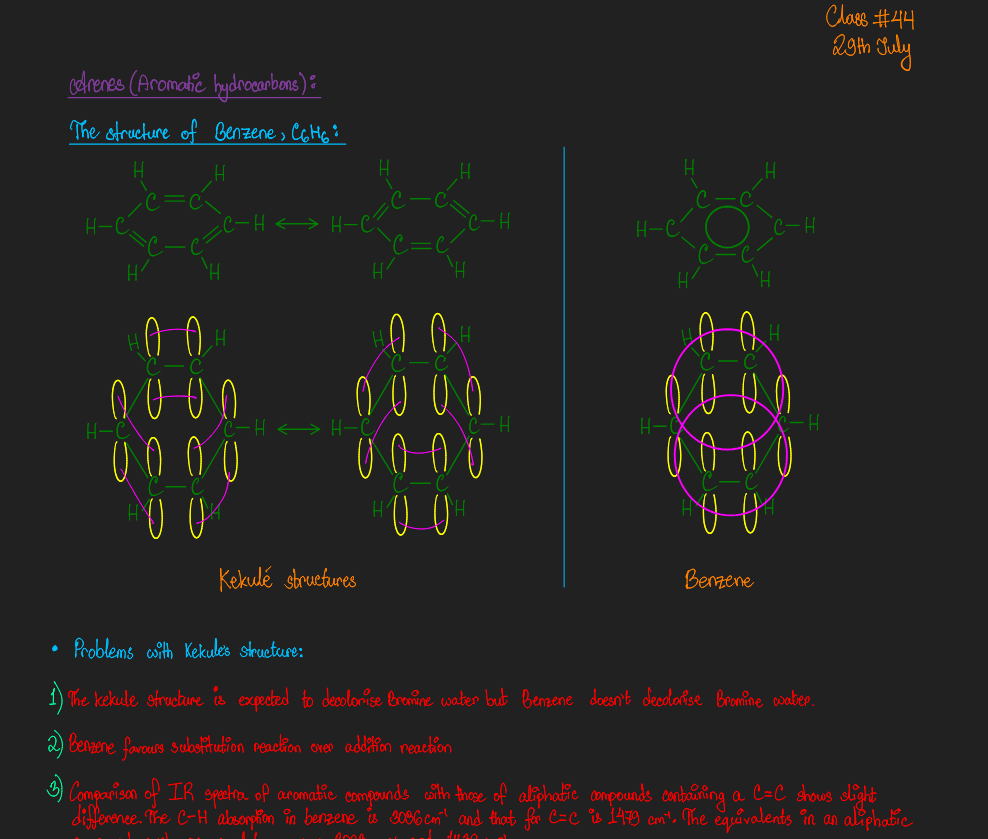 Class #44
29th July
Arenes (Aromatic hydrocarbons):
The structure of Benzene, C6H6:
H H
C = C
H – C C – H
C – C
H H
H H
C – C
H – C C – H
C = C
H H
H H
C – C
H – C C – H
C – C
H H
H H
C – C
H – C C – H
C – C
H H
H H
C – C
H – C C – H
C – C
H H
H H
C – C
H – C C – H
C – C
H H
Kekulé structures
Benzene
• Problems with Kekule's structure:
1) The kekule structure is expected to decolorise Bromine water but Benzene doesn't decolorise Bromine water.
2) Benzene favours substitution reaction over addition reaction
3) Comparison of IR spectra of aromatic compounds with those of aliphatic compounds containing a C=C shows slight
difference. The C-H absorption in benzene is 3036 cm⁻¹ and that for C=C is 1479 cm⁻¹. The equivalents in an aliphatic